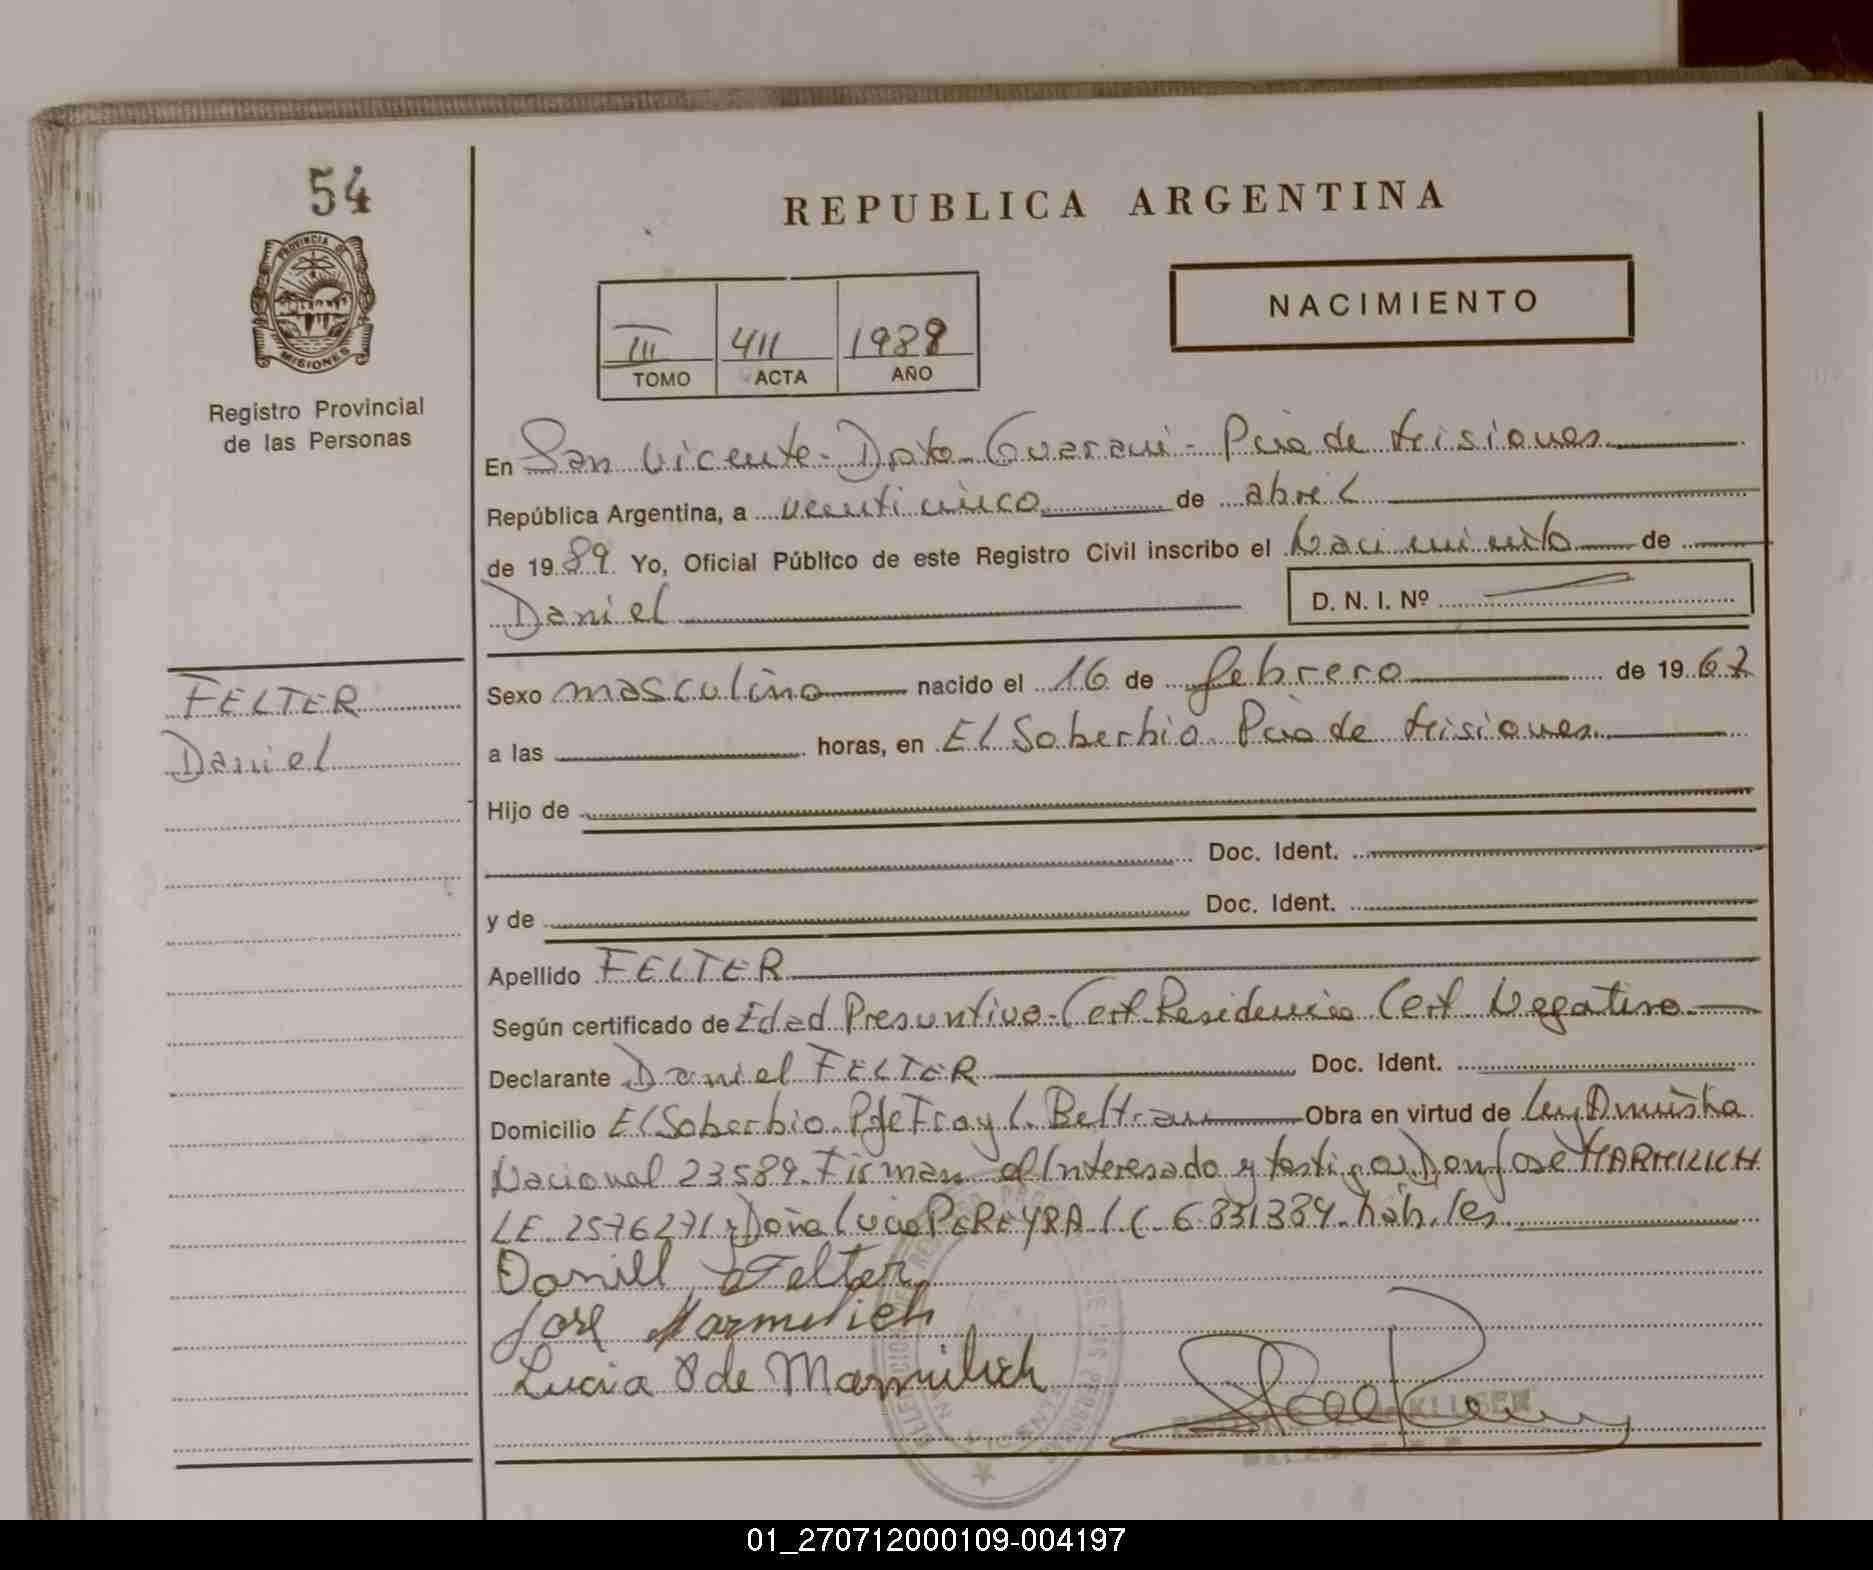 54
REPUBLICA ARGENTINA
PROVINCIA DE
MISIONES
Registro Provincial
de las Personas
NACIMIENTO
III 411 1989
TOMO ACTA AÑO
En San Vicente - Dpto Guarani - Pcia de Misiones
República Argentina, a veinticinco de abril
de 1989 Yo, Oficial Público de este Registro Civil inscribo el Nacimiento de
Daniel D. N. I. Nº
FELTER
Daniel
Sexo masculino nacido el 16 de febrero de 1967
a las horas, en El Soberbio Pcia de Misiones
Hijo de
Doc. Ident.
y de Doc. Ident.
Apellido FELTER
Según certificado de Edad Presuntiva - Cert. Residencia Cert. Negativo
Declarante Daniel FELTER Doc. Ident.
Domicilio El Soberbio Pje Fray L. Beltran Obra en virtud de Ley Amnistia
Nacional 23589. Firman el Interesado y testigos Don José MARMILICH
LE 2576271 y Doña Lucia PEREYRA LC 6.831.384. hábiles
Daniell Felter
José Marmilich
Lucia P de Marmilich
01_270712000109-004197